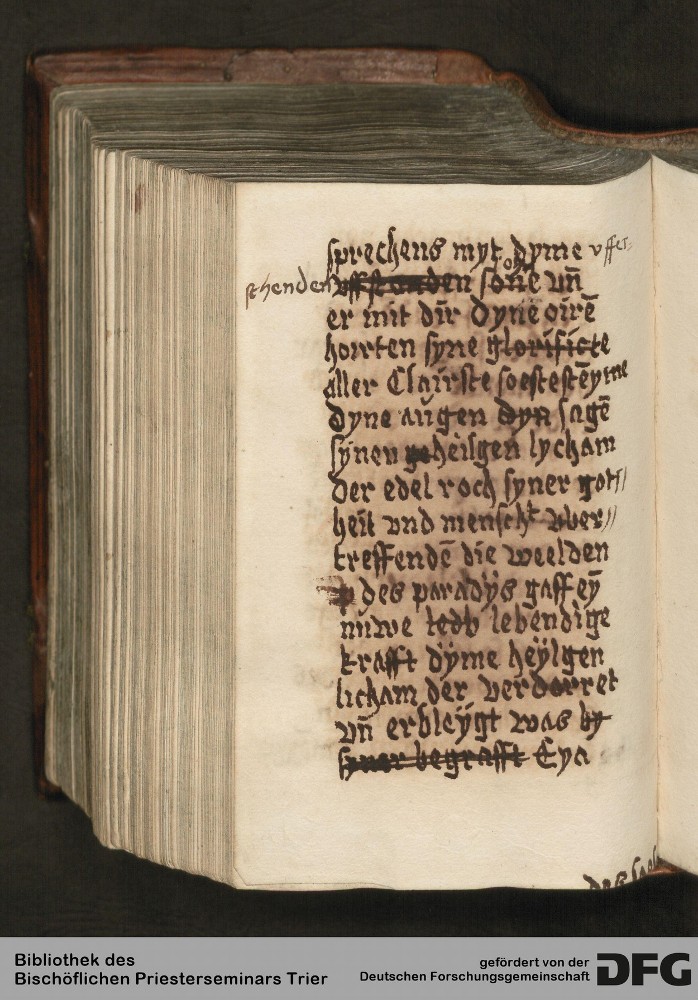 sprechens myt dyme vffer⸗
sthenden vffstanden sone vn̄
er mit dir dyne oirē
horten syne glorificte
aller Clairste soestestē ynne
dyne augen dyn sagē
synen heilgen lycham
der edel roch syner got//
heit vnd mensch vber//
treffendē die weelden
des paradÿs gaff eyn̄
nuwe ledb lebendige
krafft dÿme heÿlgen
licham der verdorret
vn̄ erbleÿgt was by
syner begrafft Eya
Bibliothek des
Bischöflichen Priesterseminars Trier
gefördert von der
Deutschen Forschungsgemeinschaft
DFG